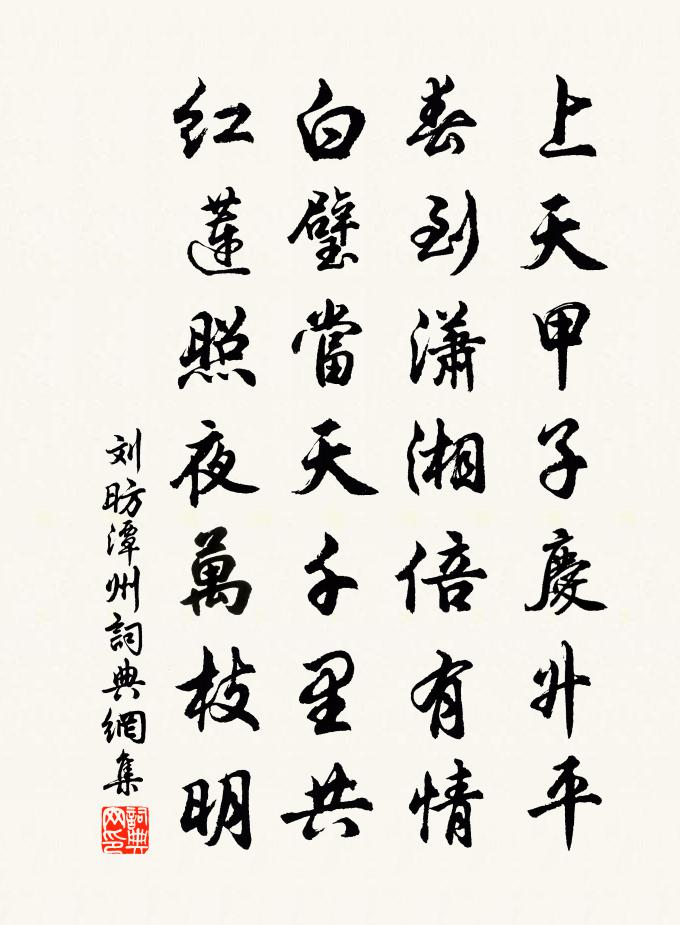 上天甲子慶升平
春到瀟湘倍有情
白璧當天千里共
紅蓮照夜萬枝明
刘昉潭州詞典網集
詞典
网印